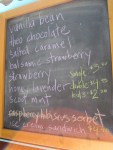 vanilla bean
theo chocolate
salted caramel
balsamic strawberry
strawberry
honey lavender
scout mint
raspberry hibiscus sorbet
ice cream sandwich
single $3.00
double $4.
kids $2.00